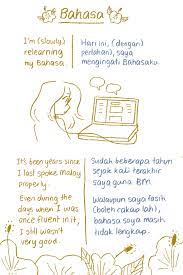 Bahasa
I'm (slowly)
relearning
my Bahasa.
Hari ini, (dengan)
perlahan), saya
mengingati Bahasaku.
It's been years since
I last spoke Malay
properly.
Even during the
days when I was
once fluent in it,
I still wasn't
very good.
Sudah beberapa tahun
sejak kali terakhir
saya guna BM
Walaupun saya fasih
(boleh cakap lah),
bahasa saya masih
tidak lengkap.